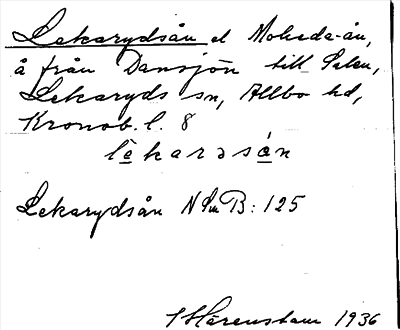 Lekarydsån el Moheda-ån,
å från Dansjön till Salen,
Lekaryds sn, Allbo hd,
Kronob. l. 8
lekarəsån
Lekarydsån NSmB: 125
Härenstam 1936